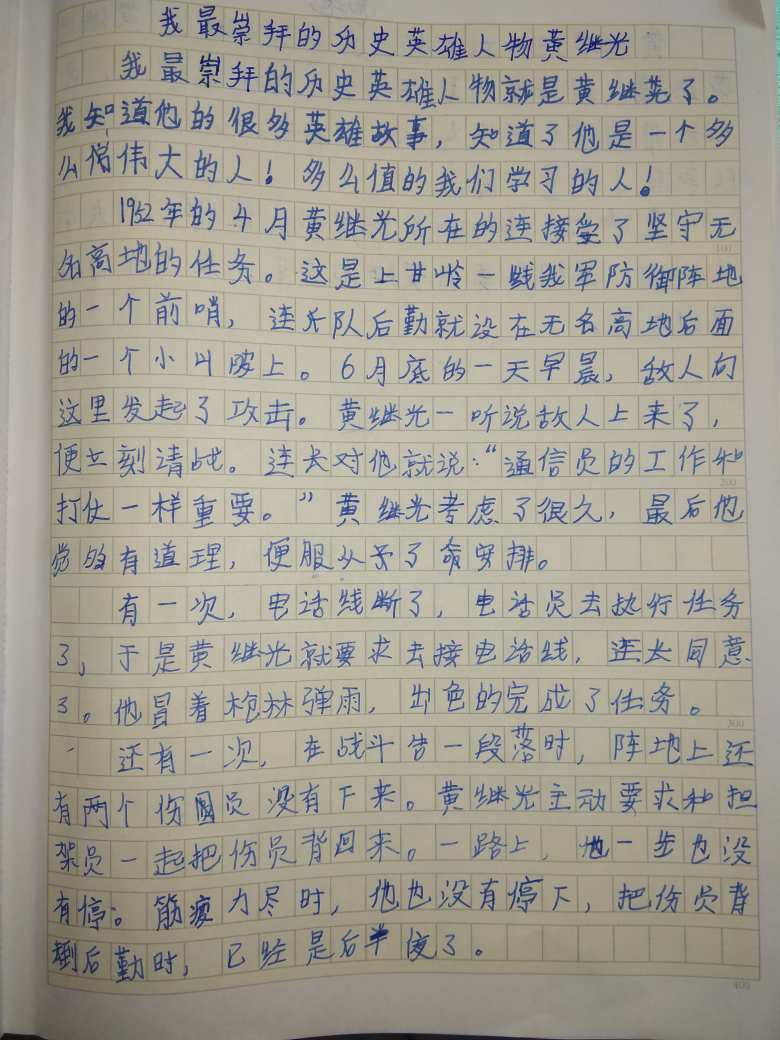 我最崇拜的历史英雄人物黄继光
我最崇拜的历史英雄人物就是黄继光了。
我知道他的很多英雄故事，知道了他是一个多
么伟大的人！多么值的我们学习的人！
1952年的4月黄继光所在的连接受了坚守无
名高地的任务。这是上甘岭一线我军防御阵地
的一个前哨，连长队后勤就设在无名高地后面
的一个小山脚上。6月底的一天早晨，敌人向
这里发起了攻击。黄继光一听说敌人上来了，
便立刻请战。连长对他就说："通信员的工作和
打仗一样重要。"黄继光考虑了很久，最后他
觉的有道理，便服从予了命安排。
有一次，电话线断了，电话员去执行任务
了，于是黄继光就要求去接电话线，连长同意
了。他冒着枪林弹雨，出色的完成了任务。
还有一次，在战斗告一段落时，阵地上还
有两个伤员没有下来。黄继光主动要求和担
架员一起把伤员背回来。一路上，他一步也没
有停。筋疲力尽时，他也没有停下，把伤员背
到后勤时，已经是后半夜了。
100
200
300
400